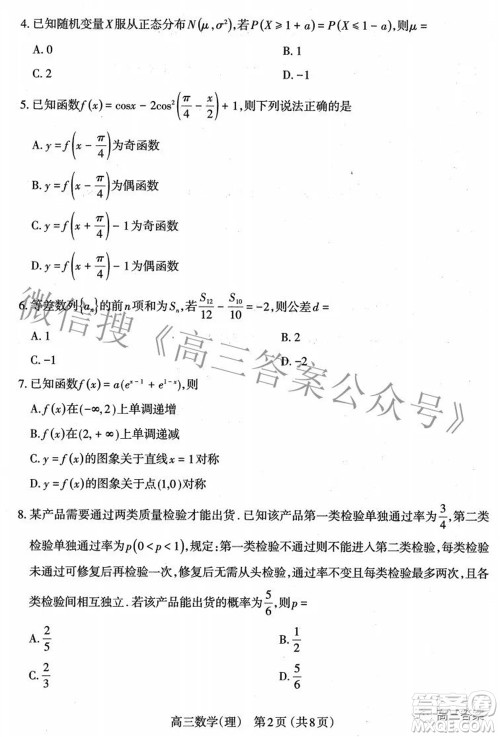 4. 已知随机变量X服从正态分布N(μ, σ²), 若P(X⩾1+a)=P(X⩽1-a),则μ=
A. 0 B. 1
C. 2 D. 4
5. 已知函数f(x)=cosx-2cos²(π/4-x/2)+1,则下列说法正确的是
A. y=f(x-π/4)为奇函数
B. y=f(x-π/4)为偶函数
C. y=f(x+π/4)-1为奇函数
D. y=f(x+π/4)-1为偶函数
6. 等差数列{aₙ}的前n项和为Sₙ,若S₁₂/12-S₁₀/10=-2,则公差d=
A. 1 B. 2
C. -1 D. -2
7. 已知函数f(x)=a(eˣ⁻¹+e¹⁻ˣ),则
A. f(x)在(-∞,2)上单调递增
B. f(x)在(2,+∞)上单调递减
C. y=f(x)的图象关于直线x=1对称
D. y=f(x)的图象关于点(1,0)对称
8. 某产品需要通过两类质量检验才能出货.已知该产品第一类检验单独通过率为3/4,第二类
检验单独通过率为p(0<p<1),规定:第一类检验不通过则不能进入第二类检验,每类检验
未通过可修复后再检验一次,修复后无需从头检验,通过率不变且每类检验最多两次,且各
类检验间相互独立.若该产品能出货的概率为5/6,则p=
A. 2/5 B. 1/2
C. 2/3 D. 5/6
高三数学(理) 第2页(共8页)
微信搜《高三答案公众号》
高三答案